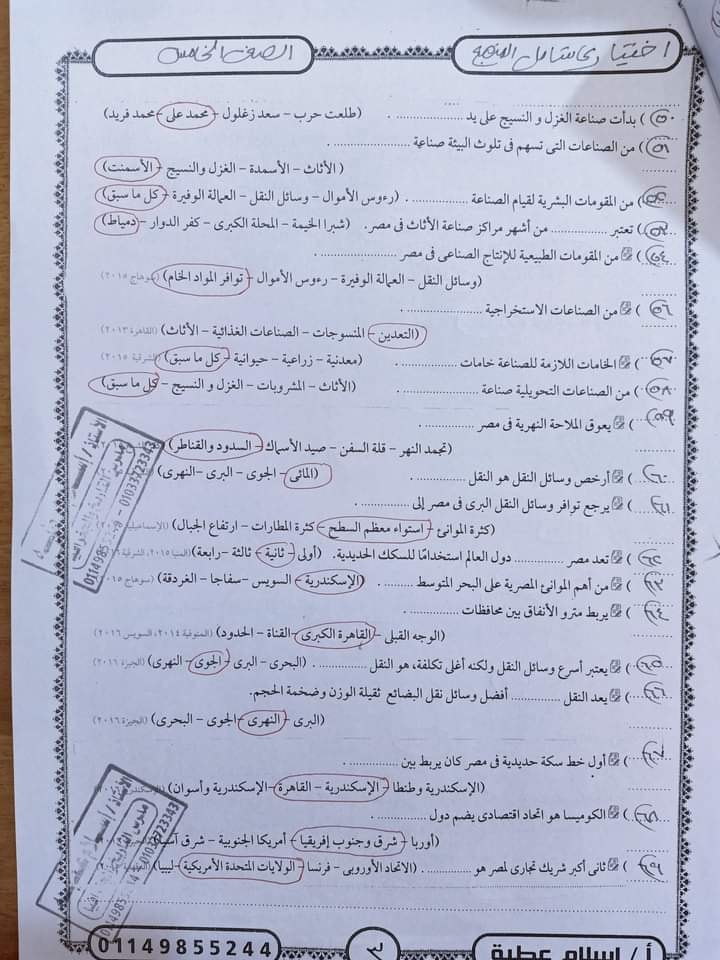 اختيارى شامل المنهج
الصف الخامس
٥٠ ) بدأت صناعة الغزل و النسيج على يد .............. . (طلعت حرب – سعد زغلول – محمد على – محمد فريد)
٥١ ) من الصناعات التى تسهم فى تلوث البيئة صناعة ..............
(الأثاث – الأسمدة – الغزل والنسيج – الأسمنت)
٥٢ ) من المقومات البشرية لقيام الصناعة .............. . (رءوس الأموال – وسائل النقل – العمالة الوفيرة – كل ما سبق)
٥٣ ) تعتبر .............. من أشهر مراكز صناعة الأثاث فى مصر. (شبرا الخيمة – المحلة الكبرى – كفر الدوار – دمياط)
٥٤ ) من المقومات الطبيعية للإنتاج الصناعى فى مصر .............. .
(وسائل النقل – العمالة الوفيرة – رءوس الأموال – توافر المواد الخام) (سوهاج ٢٠١٥)
٥٦ ) من الصناعات الاستخراجية ..............
(التعدين – المنسوجات – الصناعات الغذائية – الأثاث) (القاهرة ٢٠١٣)
٥٧ ) الخامات اللازمة للصناعة خامات .............. . (معدنية – زراعية – حيوانية – كل ما سبق) (الشرقية ٢٠١٥)
٥٨ ) من الصناعات التحويلية صناعة .............. . (الأثاث – المشروبات – الغزل و النسيج – كل ما سبق)
٥٩ ) يعوق الملاحة النهرية فى مصر .............. .
(تجمد النهر – قلة السفن – صيد الأسماك – السدود والقناطر)
٦٠ ) أرخص وسائل النقل هو النقل .............. . (المائى – الجوى – البرى – النهرى)
٦١ ) يرجع توافر وسائل النقل البرى فى مصر إلى .............. .
(كثرة الموانئ – استواء معظم السطح – كثرة المطارات – ارتفاع الجبال)
٦٢ ) تعد مصر .............. دول العالم استخدامًا للسكك الحديدية. (أولى – ثانية – ثالثة – رابعة)
٦٣ ) من أهم الموانئ المصرية على البحر المتوسط .............. . (الإسكندرية – السويس – سفاجا – الغردقة) (سوهاج ٢٠١٥)
٦٤ ) يربط مترو الأنفاق بين محافظات .............. .
(الوجه القبلى – القاهرة الكبرى – القناة – الحدود) (المنوفية ٢٠١٤، السويس ٢٠١٦)
٦٥ ) يعتبر أسرع وسائل النقل ولكنه أغلى تكلفة، هو النقل .............. . (البحرى – البرى – الجوى – النهرى) (الجيزة ٢٠١٦)
٦٦ ) يعد النقل .............. أفضل وسائل نقل البضائع ثقيلة الوزن وضخمة الحجم.
(البرى – النهرى – الجوى – البحرى) (الجيزة ٢٠١٦)
٦٧ ) أول خط سكة حديدية فى مصر كان يربط بين .............. .
(الإسكندرية وطنطا – الإسكندرية – القاهرة – الإسكندرية وأسوان)
٦٨ ) الكوميسا هو اتحاد اقتصادى يضم دول .............. .
(أوربا – شرق وجنوب إفريقيا – أمريكا الجنوبية – شرق آسيا)
٦٩ ) ثانى أكبر شريك تجارى لمصر هو .............. . (الاتحاد الأوروبى – فرنسا – الولايات المتحدة الأمريكية – ليبيا)
أ / إسلام عطية
٣
01149855244